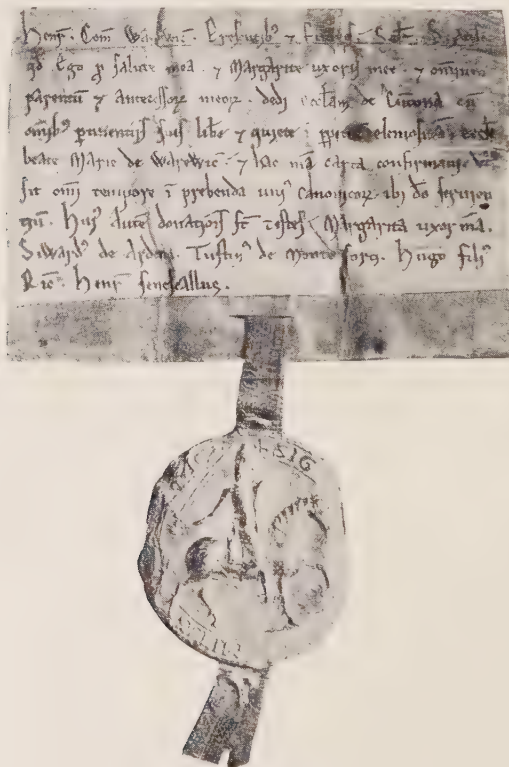 Henr̄. Com̄ Warewic̄.
qd̄ Ego ꝑ salute mea. ⁊ Margarite uxoris mee. ⁊ om̄ium
parentū ⁊ antecessoꝝ meoꝝ. dedi eccl̄am de
om̄ibꝰ ꝑtinentiis suis libe ⁊ quiete ī elemosinā
beate Marie de Warewic̄. ⁊ hac mā carta confirmaui.
sit om̄i tempore ī prebenda uniꝰ canonicoꝝ ibi dō seruien
tiū. Huiꝰ autē donationis st̄ testes Margarita uxor mā.
Siwardꝰ de Ardena. Turstinꝰ de Monte forti. Hugo filiꝰ
Ric̄. Henr̄ senescallus.
SIG